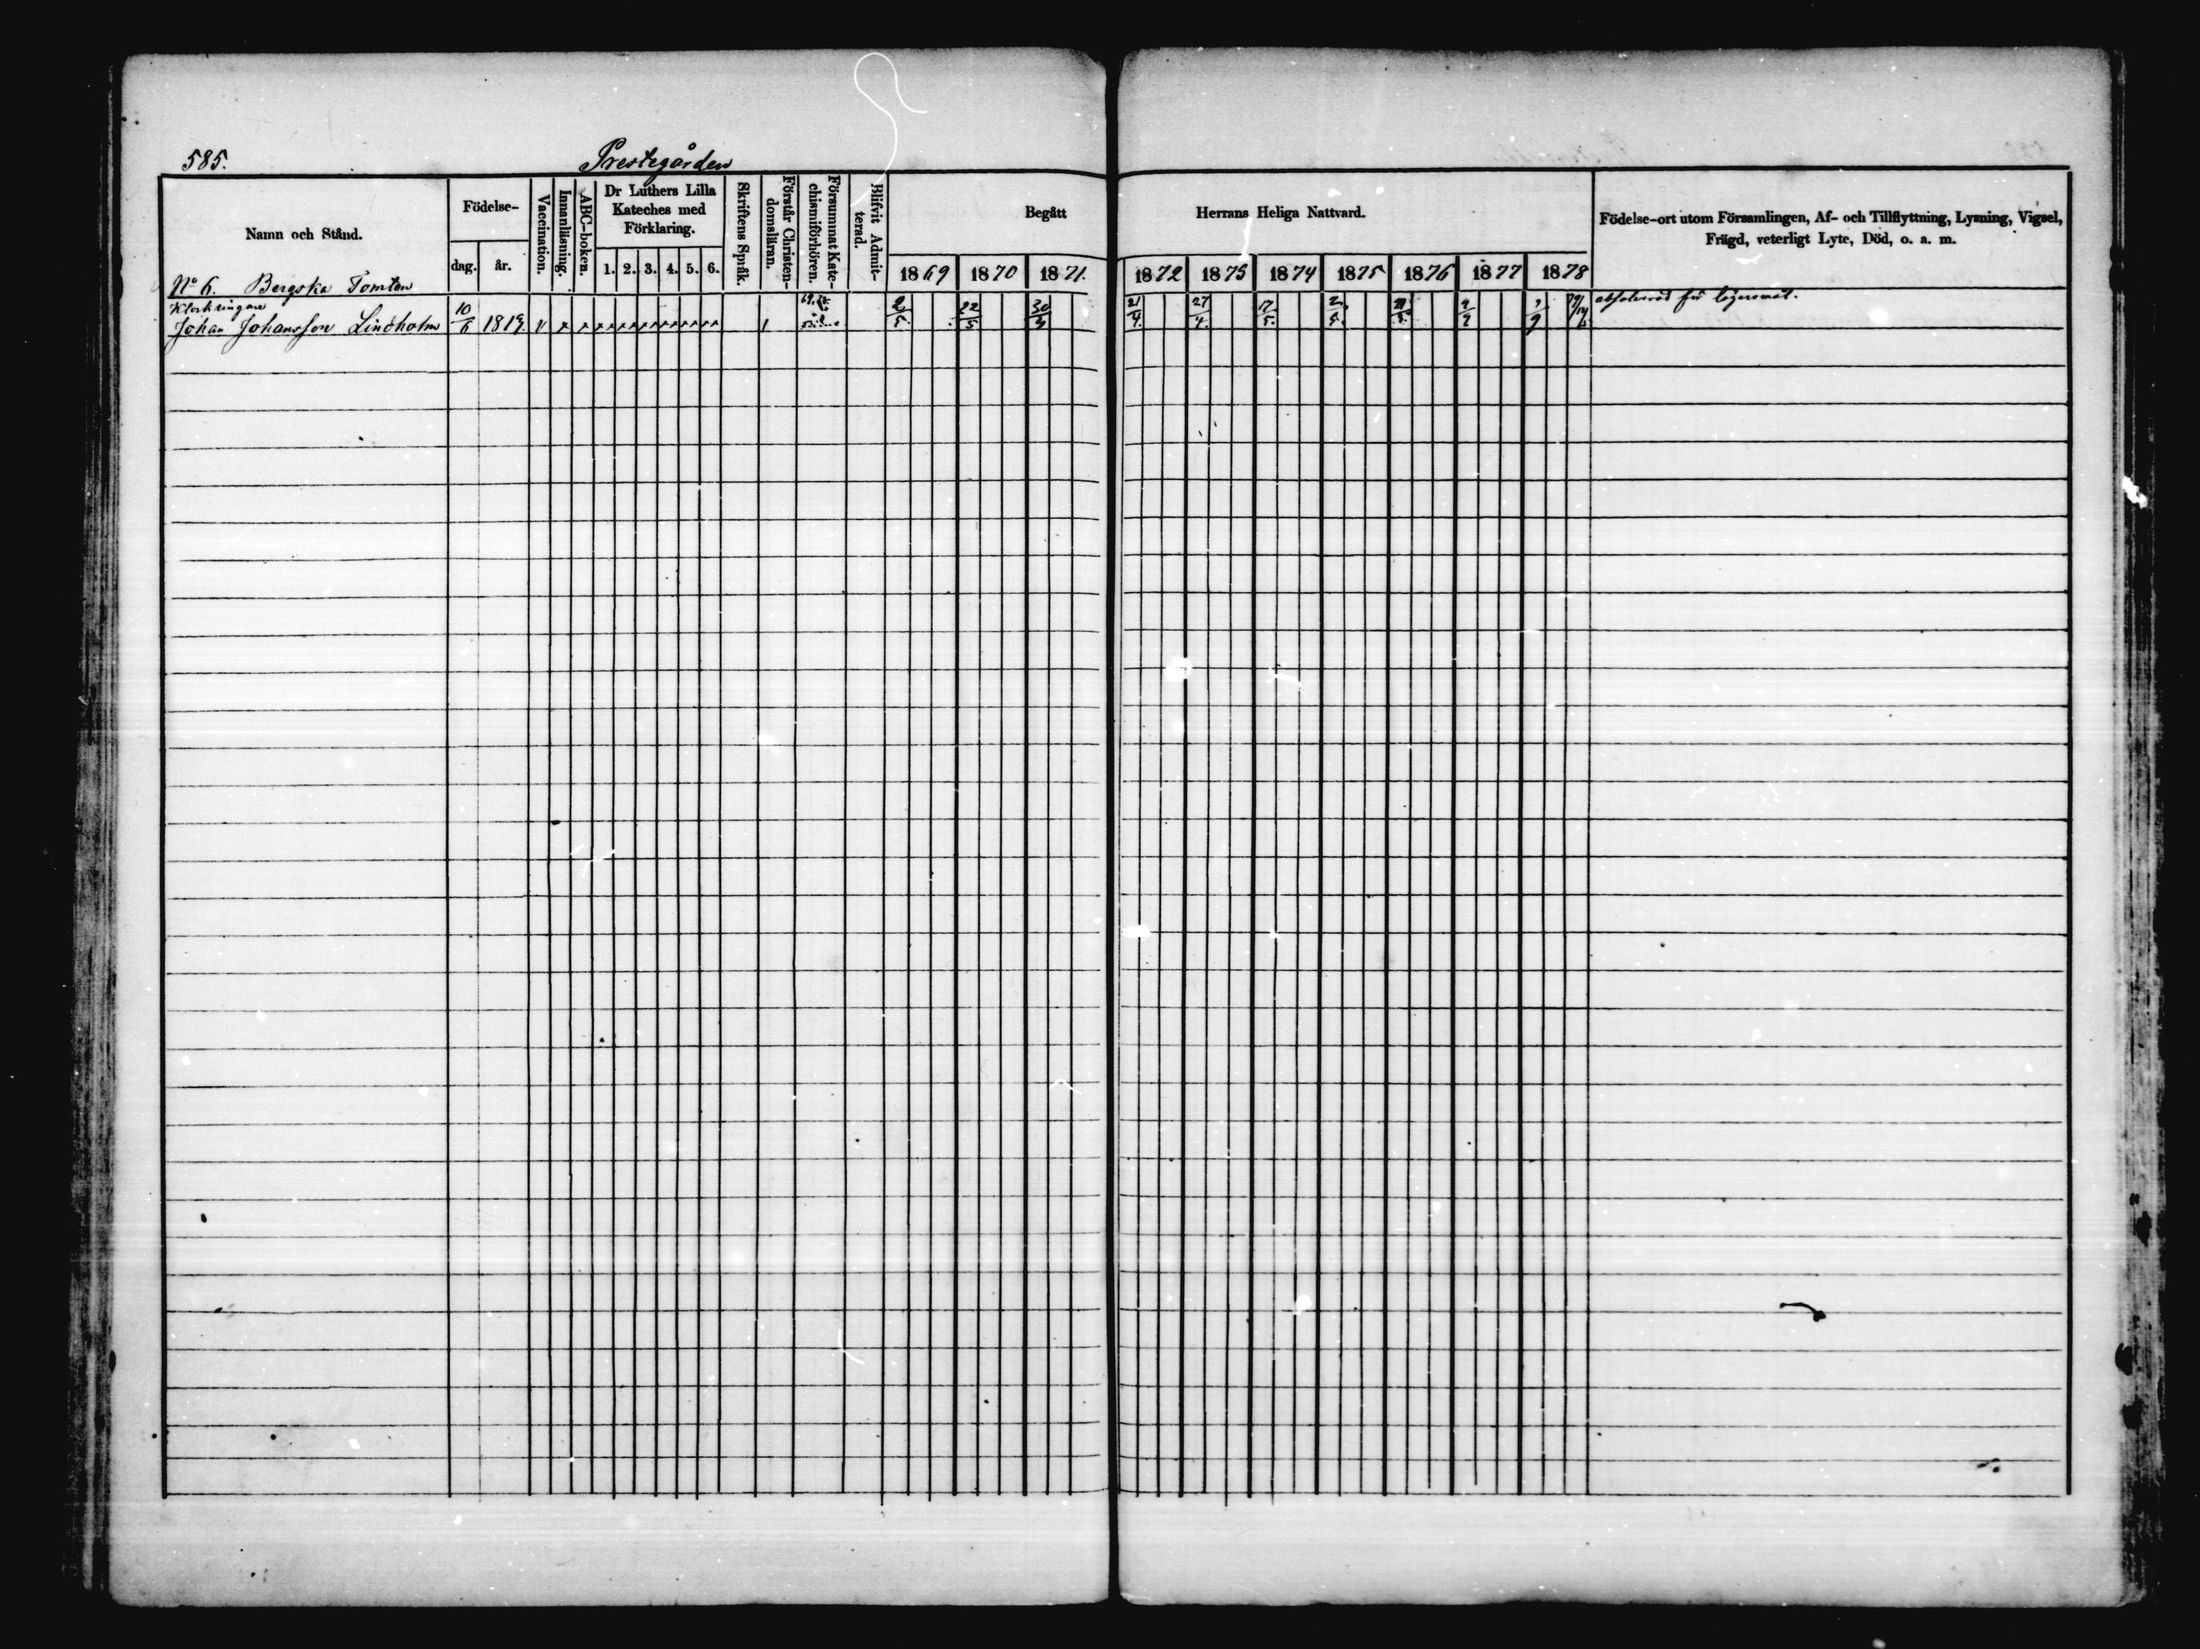 585.
Prestegården
Namn och Stånd.
Födelse-
dag.
år.
Vaccination.
Innanläsning.
ABC-boken.
Dr Luthers Lilla
Kateches med
Förklaring.
1. 2. 3. 4. 5. 6.
Skriftens Språk.
Förstår Christen-
domsläran.
Försummat Kate-
chismiförhören.
Blifvit Admit-
terad.
Begått
Herrans Heliga Nattvard.
1869 1870 1871. 1872 1873 1874 1875 1876 1877 1878
Födelse-ort utom Församlingen, Af- och Tillflyttning, Lysning, Vigsel,
Frägd, veterligt Lyte, Död, o. a. m.
No 6. Bergska Tomten
Klockringare
Johan Johansson Lindholm 10/6 1819. v 2/5 22/5 30/4 21/4. 27/4. 17/5. 2/5. 9/9
absolverad för lägersmål.